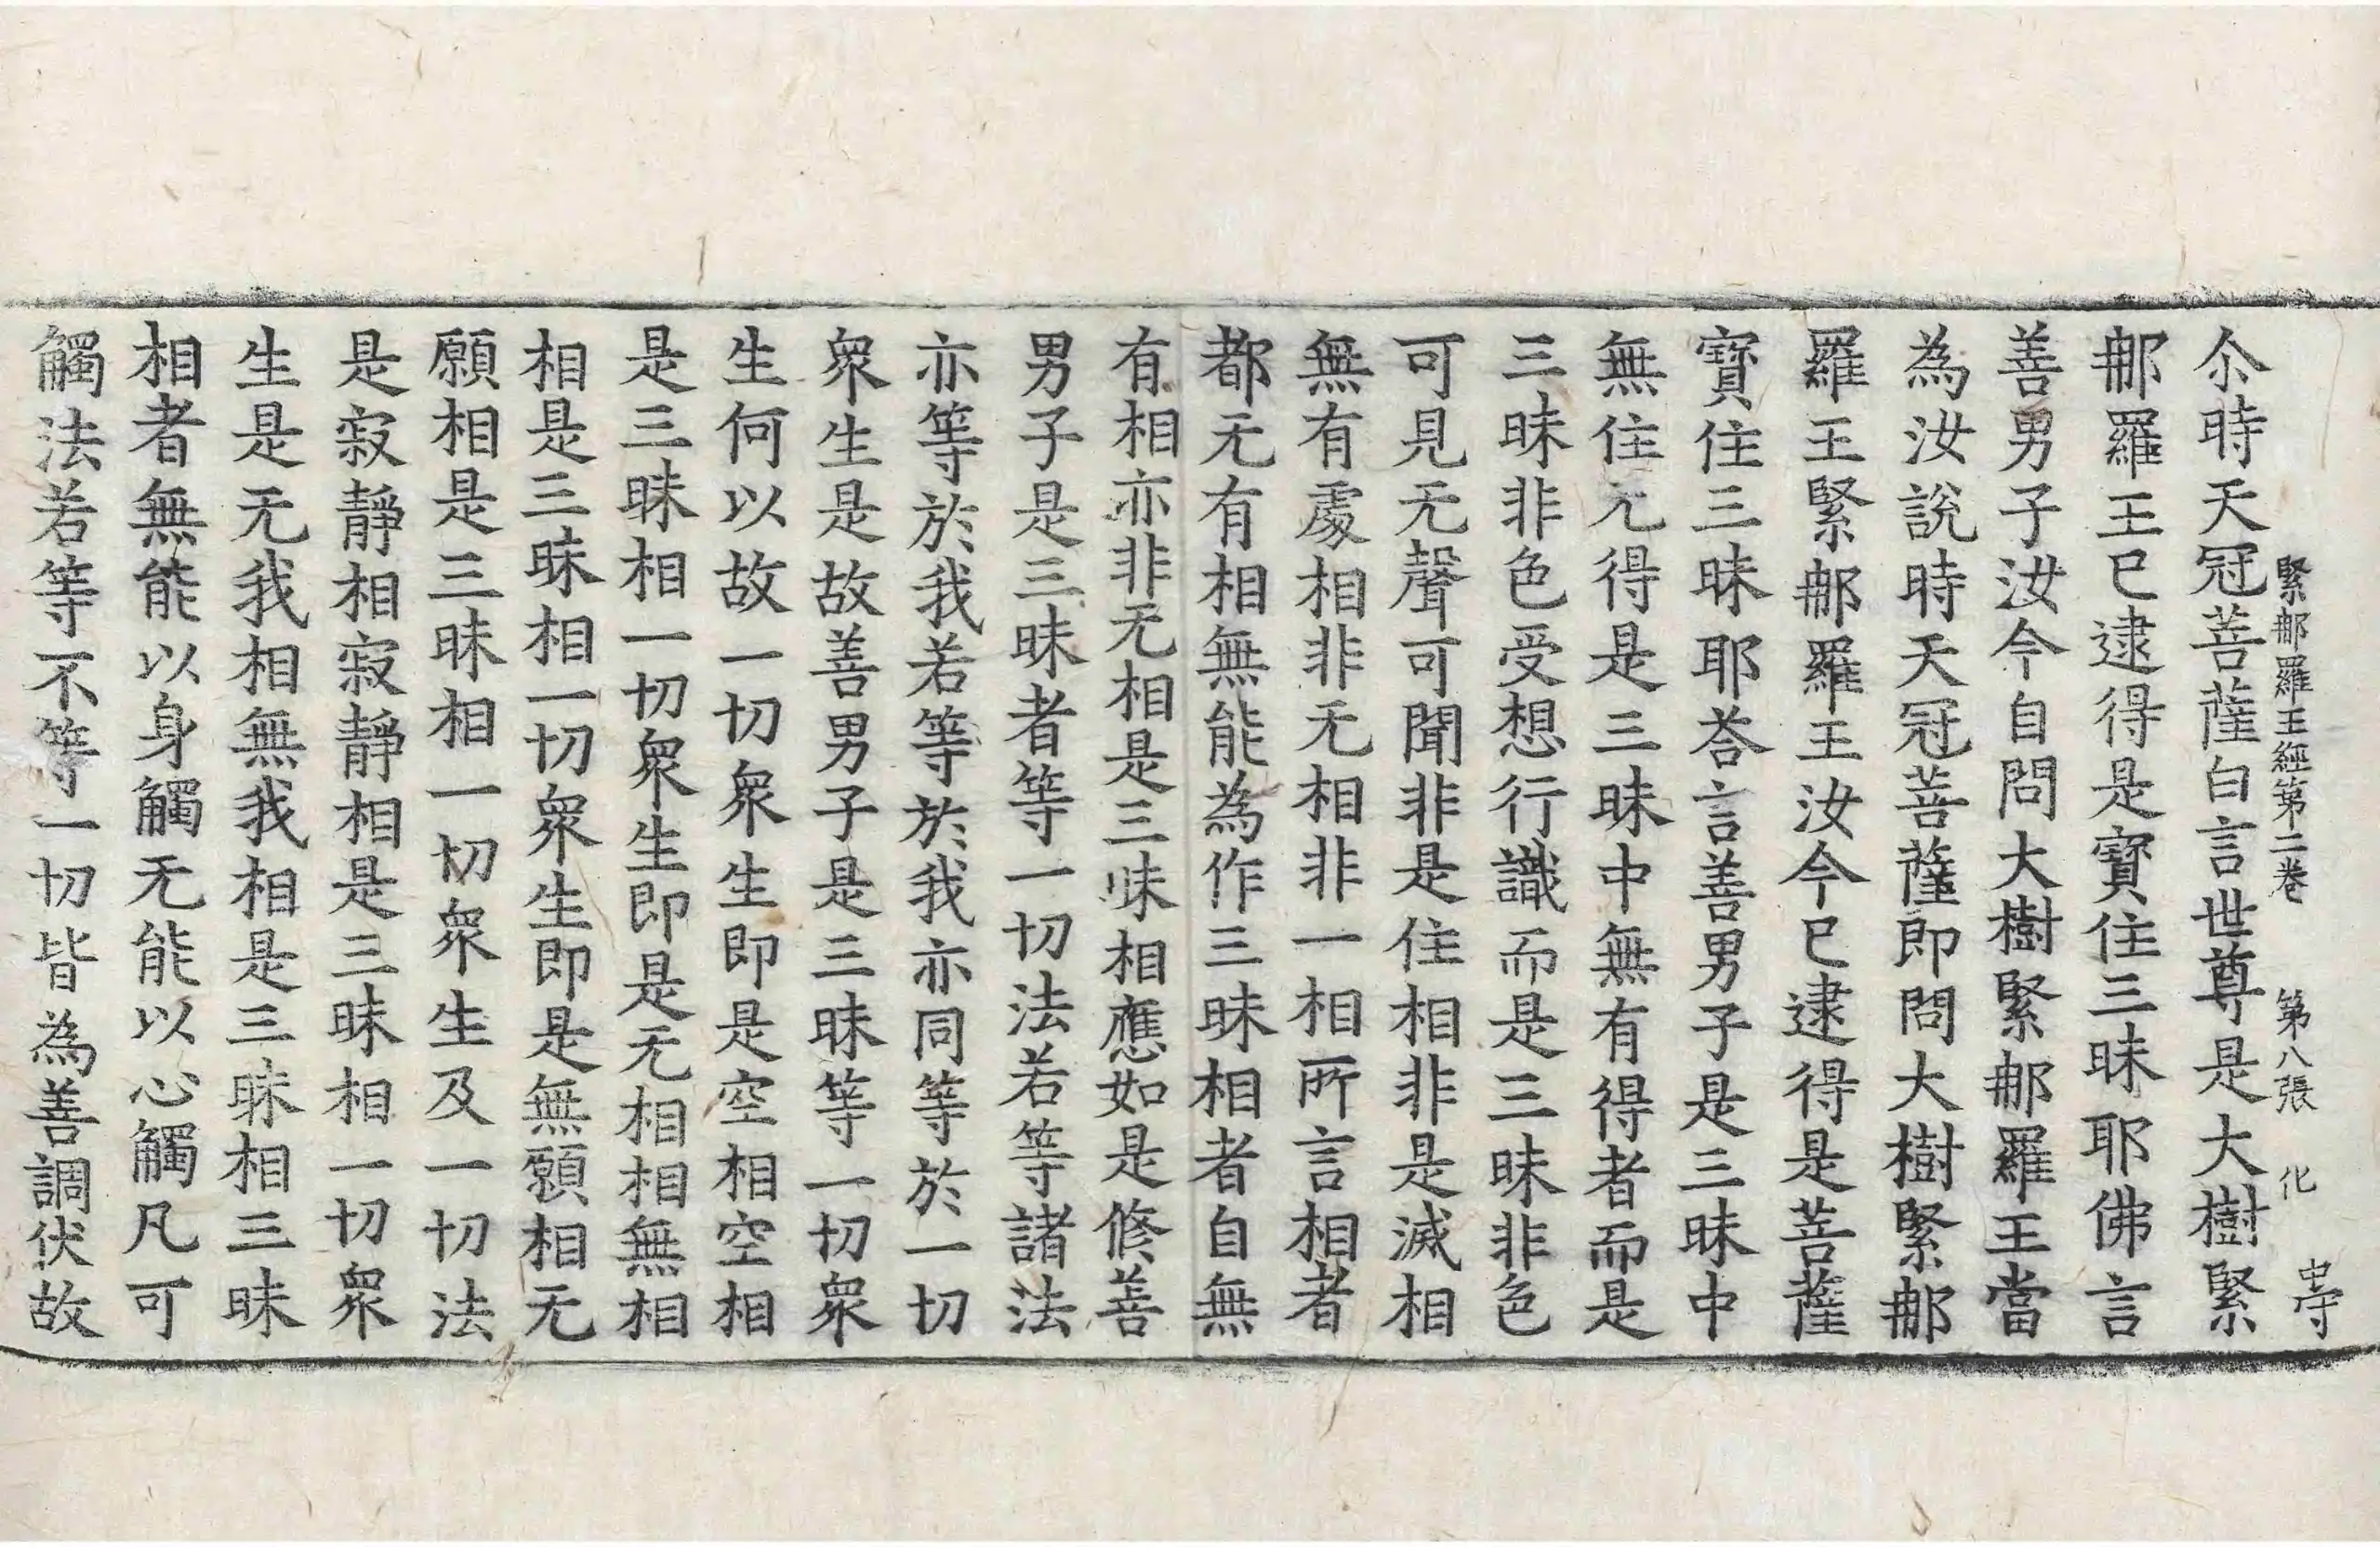 緊郍羅王經第二卷　第八張　化　中守
尒時天冠菩薩白言世尊是大樹緊
郍羅王已逮得是寶住三昧耶佛言
善男子汝今自問大樹緊郍羅王當
為汝說時天冠菩薩即問大樹緊郍
羅王緊郍羅王汝今已逮得是菩薩
寶住三昧耶荅言善男子是三昧中
無住无得是三昧中無有得者而是
三昧非色受想行識而是三昧非色
可見无聲可聞非是住相非是滅相
無有處相非无相非一相所言相者
都无有相無能為作三昧相者自無
有相亦非无相是三昧相應如是修善
男子是三昧者等一切法若等諸法
亦等於我若等於我亦同等於一切
衆生是故善男子是三昧等一切衆
生何以故一切衆生即是空相空相
是三昧相一切衆生即是无相相無相
相是三昧相一切衆生即是無願相无
願相是三昧相一切衆生及一切法
是寂靜相寂靜相是三昧相一切衆
生是无我相無我相是三昧相三昧
相者無能以身觸无能以心觸凡可
觸法若等不等一切皆為善調伏故